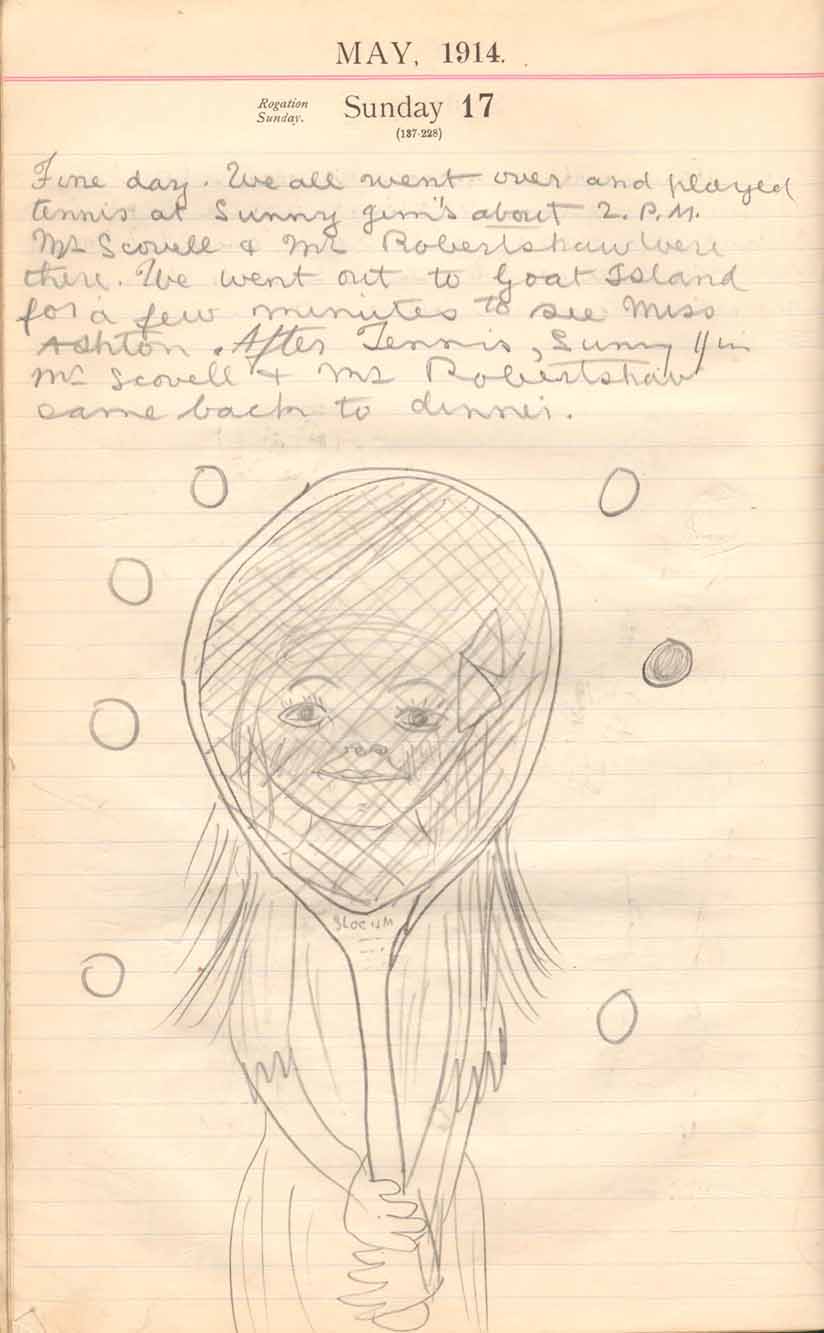 MAY, 1914.
Rogation
Sunday.
Sunday 17
(137-228)
Fine day. We all went over and played
tennis at Sunny Jim's about 2. P.M.
Mr Scovell & Mr Robertshaw were
there. We went out to Goat Island
for a few minutes to see Miss
Ashton. After Tennis, Sunny Jim
Mr Scovell & Mr Robertshaw
came back to dinner.
SLOCUM